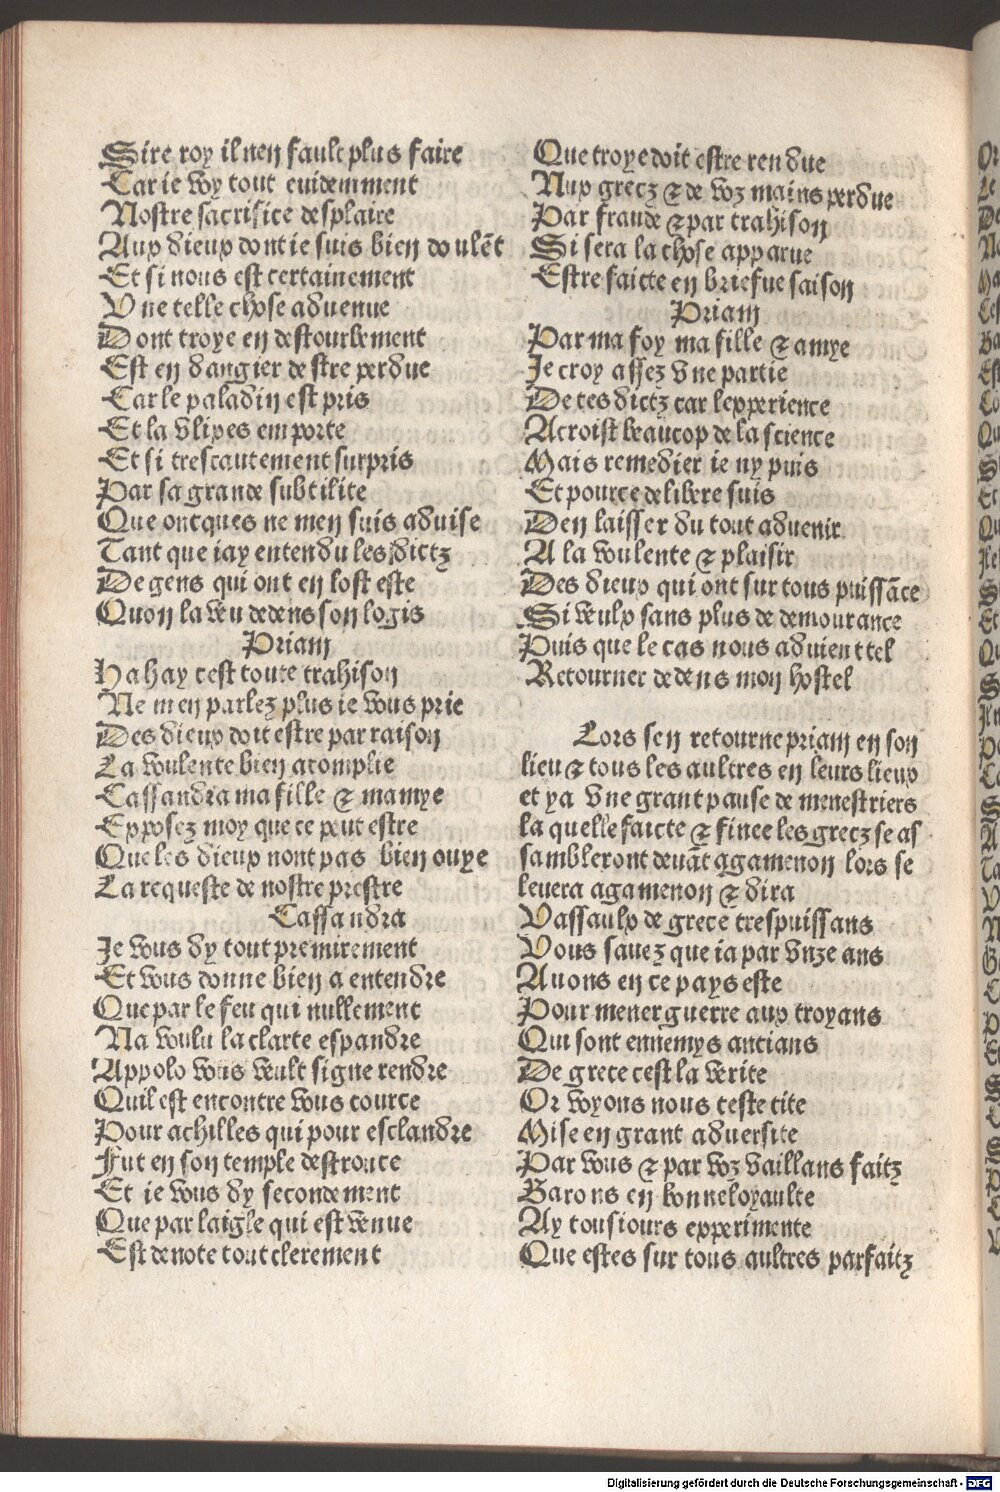 Sire roy il nen fault plus faire
Car ie voy tout euidemment
Nostre sacrifice desplaire
Aux dieux dont ie suis bien doulēt
Et si nous est certainement
Vne telle chose aduenue
Dont troye en destourbement
Est en dangier destre perdue
Car le paladin est pris
Et la vlixes emporte
Et si trescautement surpris
Par sa grande subtilite
Que oncques ne men suis aduise
Tant que iay entendu les dictz
De gens qui ont en lost este
Quon la veu dedens son logis
Priam
Hahay cest toute trahison
Ne men parlez plus ie vous prie
Des dieux doit estre par raison
La voulente bien acomplie
Cassandra ma fille & mamye
Exposez moy que ce peut estre
Que les dieux nont pas bien ouye
La requeste de nostre prestre
Cassandra
Je vous dy tout premirement
Et vous donne bien a entendre
Que par le feu qui nullement
Na voulu la clarte espandre
Appolo vous veult signe rendre
Quil est encontre vous cource
Pour achilles qui pour esclandre
Fut en son temple destrouce
Et ie vous dy secondement
Que par laigle qui est venue
Est denote tout clerement
Que troye doit estre rendue
Aux grecz & de voz mains perdue
Par fraude & par trahison
Si sera la chose apparue
Estre faicte en briefue saison
Priam
Par ma foy ma fille & amye
Je croy assez vne partie
De tes dictz car lexperience
Acroist beaucop de la science
Mais remedier ie ny puis
Et pource delibere suis
Den laisser du tout aduenir
A la voulente & plaisir
Des dieux qui ont sur tous puissāce
Si veulx sans plus de demourance
Puis que le cas nous aduient tel
Retourner dedens mon hostel
Lors sen retourne priam en son
lieu & tous les aultres en leurs lieux
et ya vne grant pause de menestriers
la quelle faicte & finee les grecz se as
sambleront deuāt agamenon lors se
leuera agamenon & dira
Vassaulx de grece trespuissans
Vous sauez que ia par vnze ans
Auons en ce pays este
Pour mener guerre aux troyans
Qui sont ennemys ancians
De grece cest la verite
Or voyons nous ceste cite
Mise en grant aduersite
Par vous & par voz vaillans faitz
Barons en bonne loyaulte
Ay tousiours experimente
Que estes sur tous aultres parfaitz
Digitalisierung gefördert durch die Deutsche Forschungsgemeinschaft - DFG